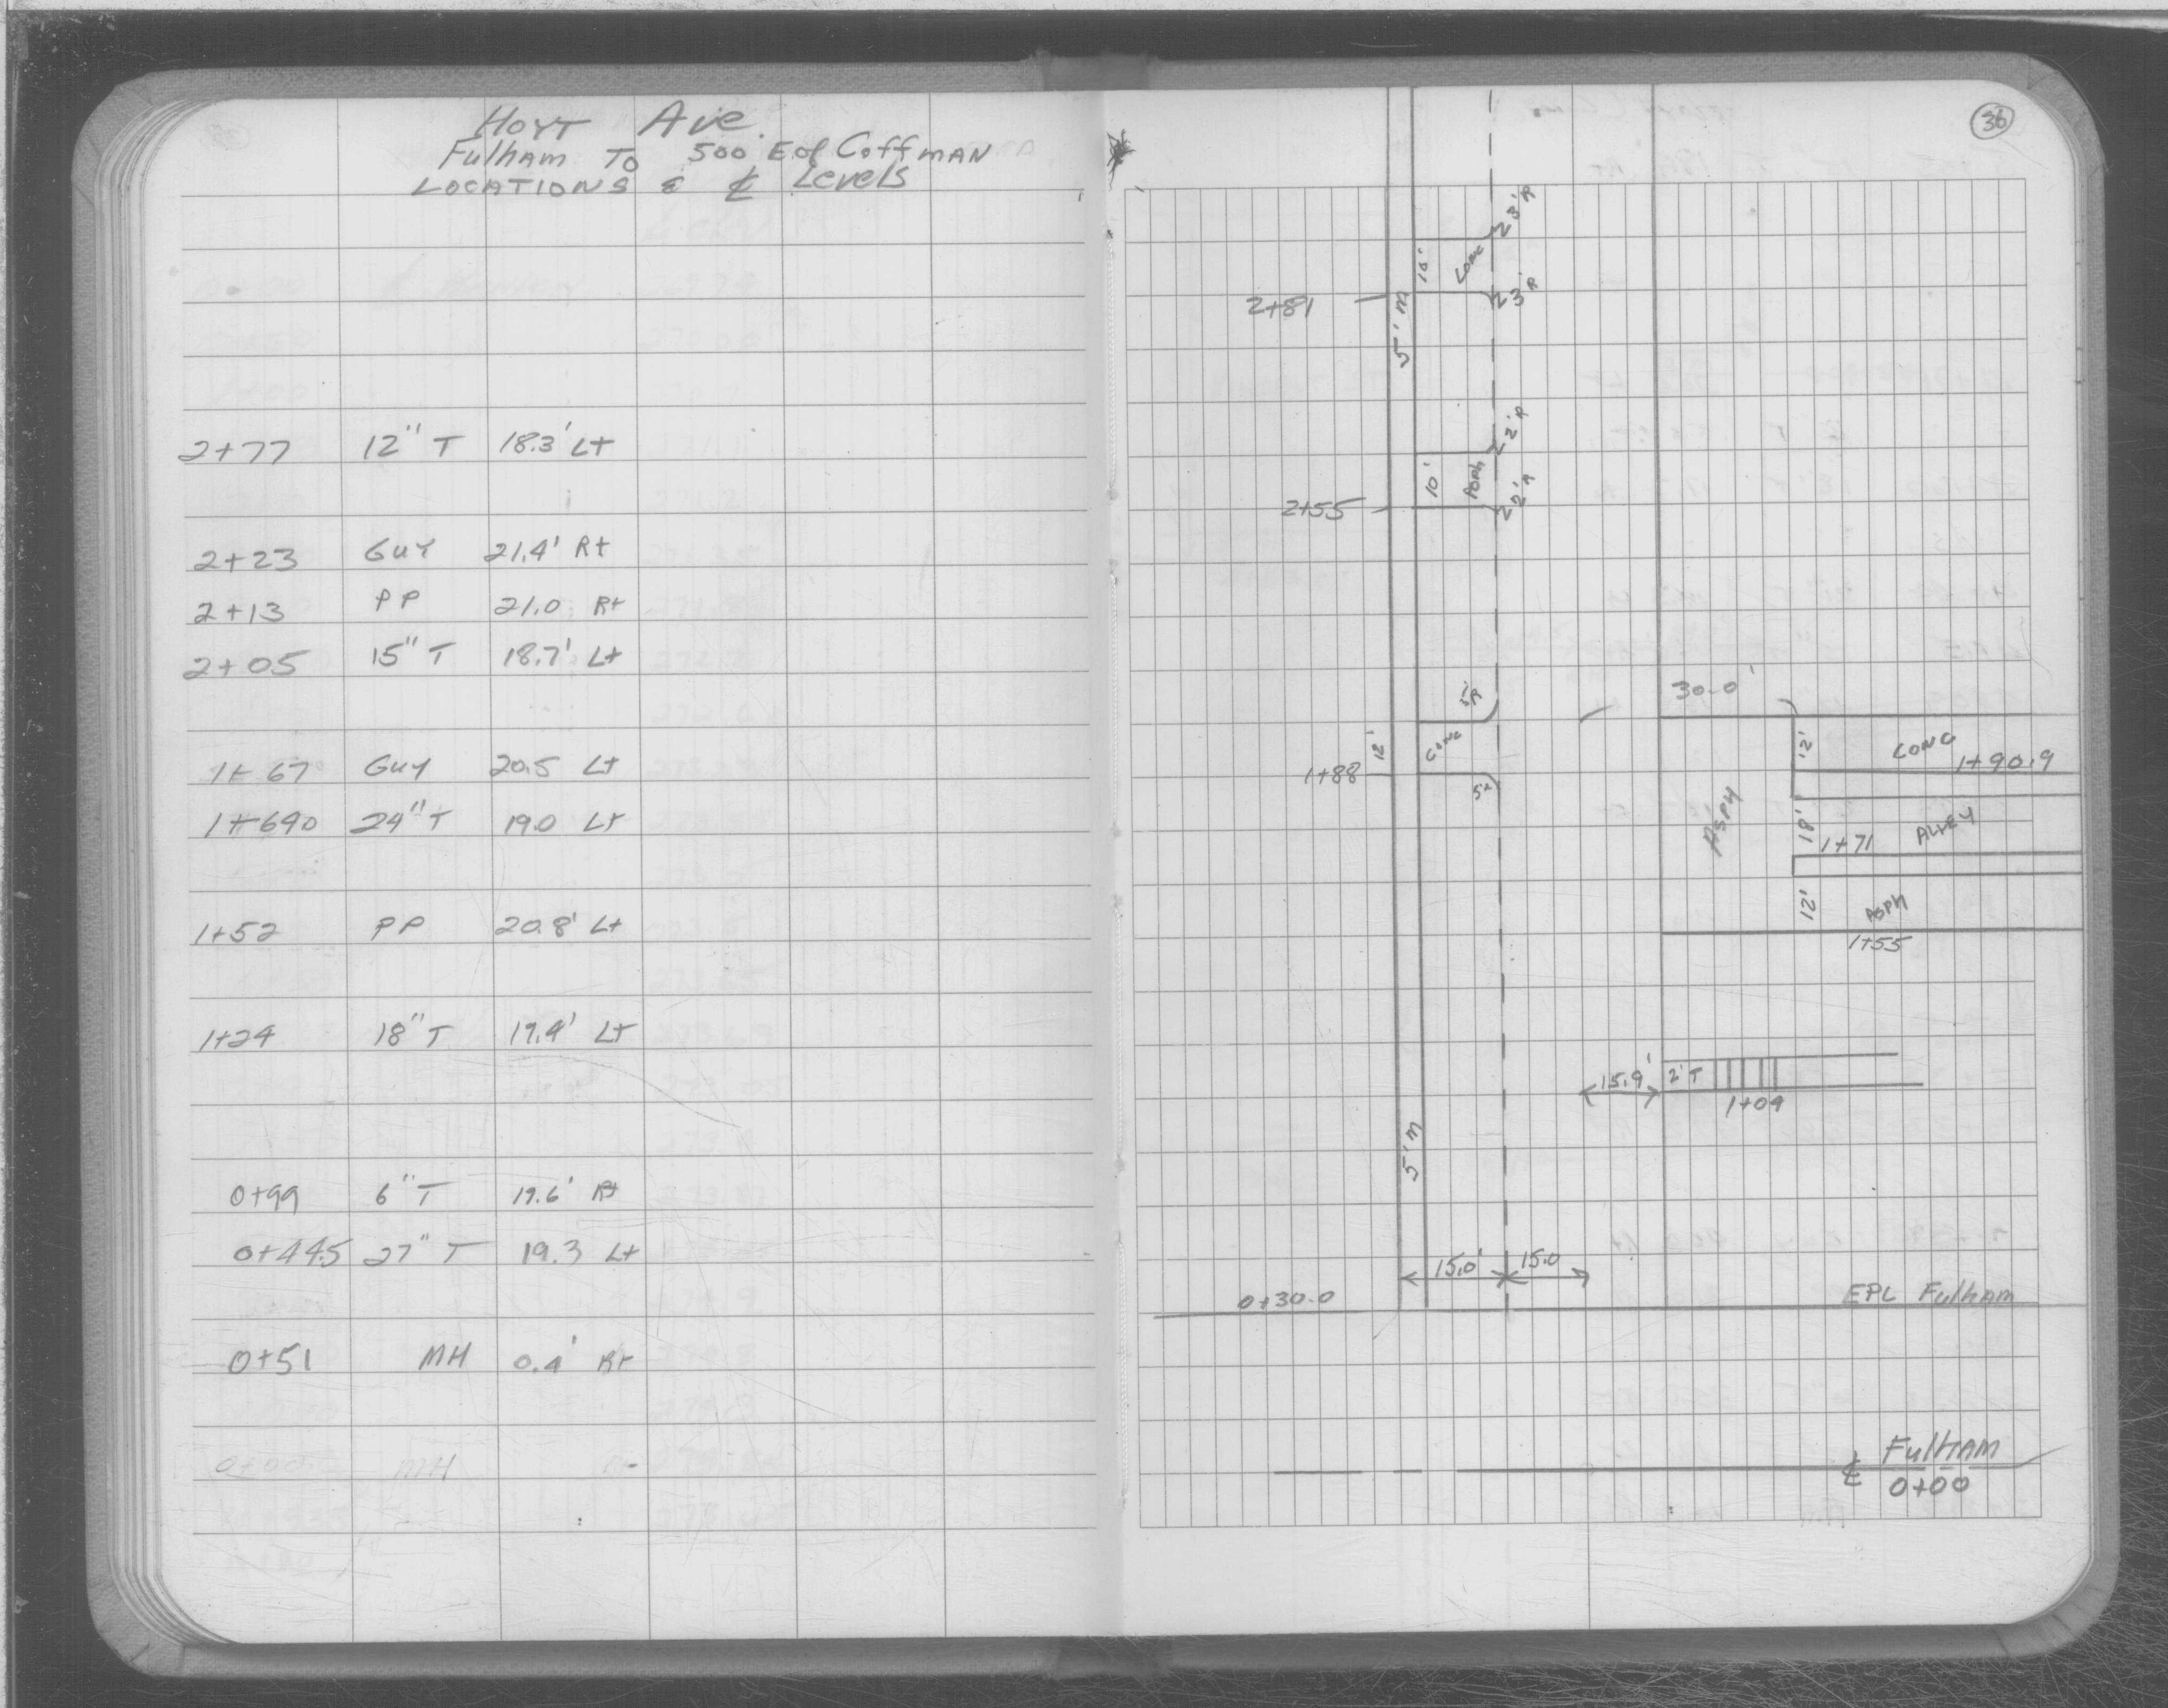 Hoyt Ave.
Fulham To 500' E of Coffman
LOCATIONS & ℄ Levels
2+77 12" T 18.3' Lt
2+23 Guy 21.4' Rt
2+13 PP 21.0 Rt
2+05 15" T 18.7' Lt
1+67 Guy 20.5 Lt
1+690 24" T 19.0 Lt
1+52 PP 20.8' Lt
1+24 18" T 19.4' Lt
0+99 6" T 19.6' Rt
0+445 27" T 19.3 Lt
0+51 MH 0.4' Rt
0+00 MH
36
23'R
16' CONC
2+81 23'R
5'm
22'R
10' Asph
2+55 22'R
5'R 30.0'
12' CONC 12' CONC
1+88 5'R 1+90.9
ASPH 18' ALLEY
1+71
12' ASPH
1+55
15.9' 2' T
1+09
5'm
15.0' 15.0
0+30.0 EPL Fulham
℄ Fulham
0+00